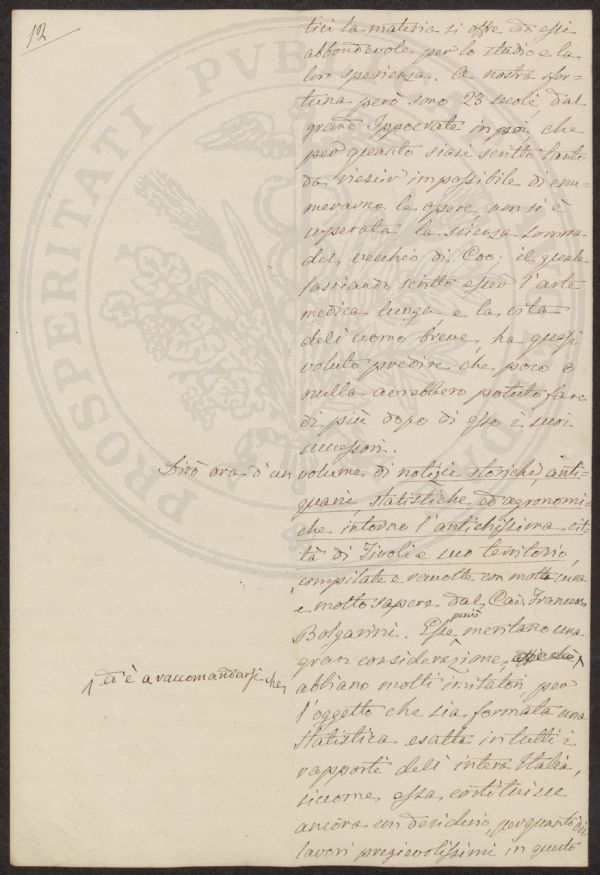 12
tici la materia si offre ad essi
abbondevole per lo studio e la
loro sperienza. A nostra sfor=
tuna però sono 23 secoli, dal
grande Ippocrate in poi, che
per quanto siasi scritto tanto
da riescir impossibile di enu=
merarne le opere, non si è
superata la scienza somma
del vecchio di Coo; il quale
lasciando scritto esser l'arte
medica lunga e la vita
dell'uomo breve, ha quasi
voluto predire che poco o
nulla avrebbero potuto fare
di più dopo di esso i suoi
successori.
Dirò ora d'un volume di notizie storiche, anti=
quarie, statistiche ed agronomi=
che intorno l'antichissima cit=
tà di Tivoli e suo territorio,
compilate e raccolte con molta cura
e molto sapere dal Cav. Francesco
Bolgarini. Esse perciò meritano una
gran considerazione,
ed è a raccomandarsi che
abbiano molti imitatori per
l'oggetto che sia formata una
statistica esatta in tutti i
rapporti dell'intera Italia,
siccome essa costituisce
ancora un desiderio, per quanto di
lavori pregievolissimi in questo